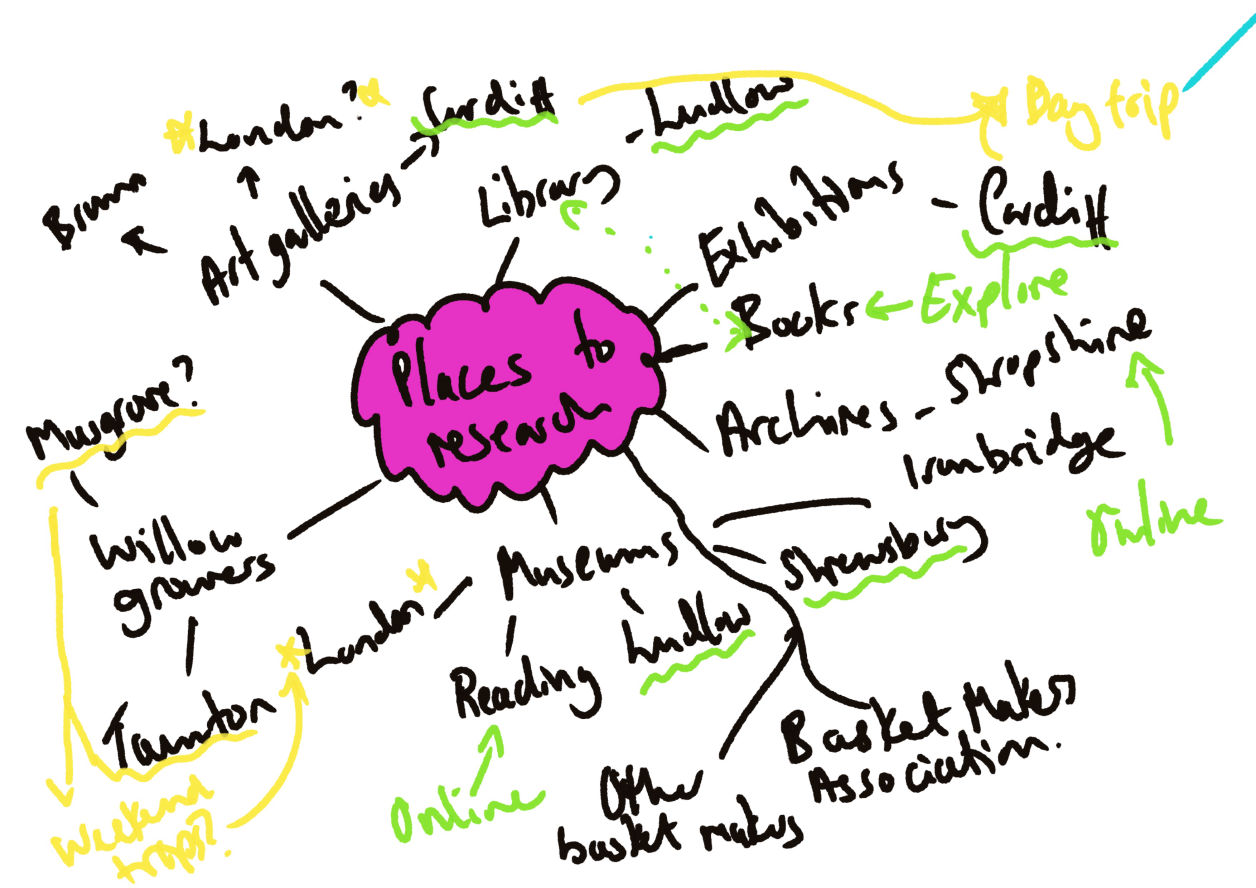 London?
Cardiff
Ludlow
Day trip
Brum
Art galleries
Library
Exhibitions
Cardiff
Places to
research
Books
Explore
Musgrove?
Archives
Shropshire
Ironbridge
Online
Willow
growers
Museums
Shrewsbury
London
Ludlow
Reading
Taunton
Weekend
trips?
Online
Other
basket makers
Basket Makers
Association.